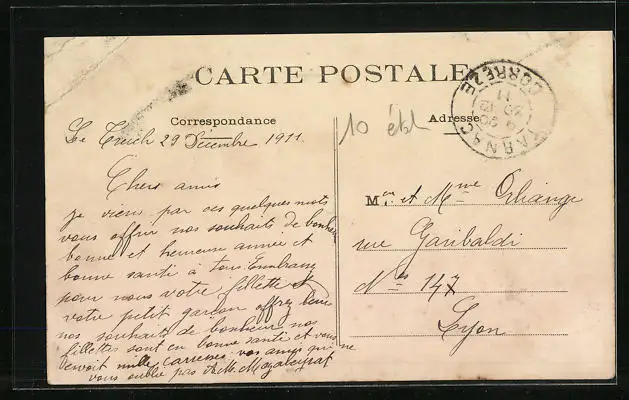 CARTE POSTALE
Correspondance
Adresse
10
Le Treich 29 Décembre 1911
Chers amis
je vien par ces quelques mots
vous offrir nos souhaits de bonheur
bonne et heureuse année et
bonne santé à tous Embrasz
pour nous votre fillette et
votre petit garçon offrez leur
nos souhaits de bonheur nos
fillettes sont en bonne santé et vous
envoit mille carresses vos amis qui ne
vous oublie pas
Mr. et Mme Orliange
rue Garibaldi
Nos 147
Lyon
CORREZE
29 -12
11